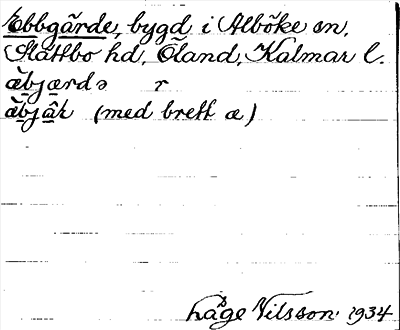 Ebbgärde, bygd i Alböke sn,
Slättbo hd, Öland, Kalmar l.
æ̀bjærdə r
æ̀bjæ̂r (med brett æ)
Låge Nilsson 1934